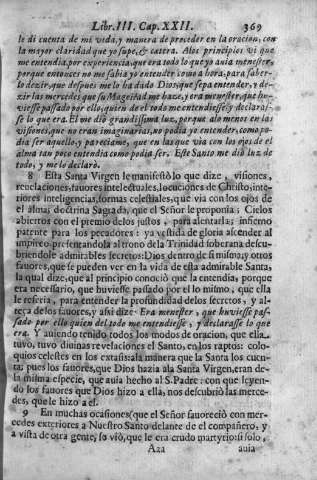 Libr. III. Cap. XXII. 369
le di cuenta de mi vida, y manera de proceder en la oracion, con
la mayor claridad que yo supe, & cætera. Alos principios vi que
me entendia por experiencia, que era todo lo que yo auia menester,
porque entonces no me sabia yo entender como ahora, para saber-
lo dezir, que despues me lo ha dado Dios, que sepa entender, y de-
zir las mercedes que su Magestad me haze, y era menester, que hu-
uiesse passado por ello, quien de el todo me entendiesse, y declaras-
se lo que era. El me diò grandissima luz, porque alo menos en las
visiones, que no eran imaginarias, no podia yo entender, como po-
dia ser aquello, y pareciame, que en las que via con los ojos de el
alma tan poco entendia como podia ser. Este Santo me diò luz de
todo, y me lo declarò.
8 Esta Santa Virgen le manifestò lo que dize, visiones,
reuelaciones, fauores intelectuales, locuciones de Christo, inte-
riores inteligencias, formas celestiales, que via con los ojos de
el alma; doctrina Sagrada, que el Señor le proponia; Cielos
abiertos con el premio de los justos, para alentarla; infierno
patente para los pecadores: ya vestida de gloria ascender al
impireo, presentandola al trono dela Trinidad soberana descu-
briendole admirables secretos: Dios dentro de si mismo, y otros
fauores, que se pueden ver en la vida de esta admirable Santa,
la qual dize, que al principio conociò que la entendia, porque
era necessario, que huviesse passado por el lo mismo, que ella
le referia, para entender la profundidad delos secretos, y al-
teça delos fauores, y assi dize: Era menester, que huviesse pas-
sado por ello quien del todo me entendiesse, y declarasse lo que
era. Y auiendo tenido todos los modos de oracion, que ella
tuvo, tuvo diuinas revelaciones el Santo, en los raptos: colo-
quios celestes en los extasis: ala manera que la Santa los cuen-
ta; pues los fauores, que Dios hazia ala Santa Virgen, eran de-
la misma especie, que auia hecho al S. Padre: con que leyen-
do los fauores que Dios hizo a ella, nos descubriò las merce-
des, que le hizo a el.
9 En muchas ocasiones, que el Señor fauoreciò con mer-
cedes exteriores a Nuestro Santo delante de el compañero, y
a vista de otra gente, lo viò, que le era crudo martyrio: si solo,
Aaa auia